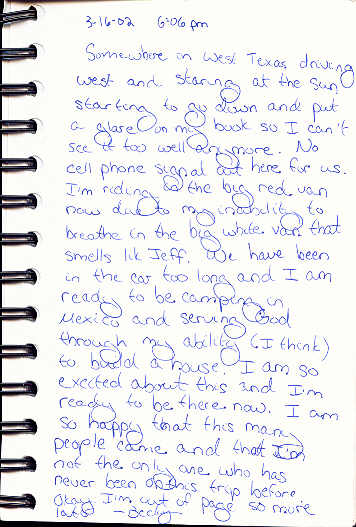 3-16-02 6:06 pm
Somewhere in West Texas driving
west and staring at the sun
starting to go down and put
a glare on my book so I can't
see it too well anymore. No
cell phone signal out here for us.
I'm riding in the big red van
now due to my inability to
breathe in the big white van that
smells lik Jeff. We have been
in the car too long and I am
ready to be camping in
Mexico and serving God
through my ability (I think)
to build a house. I am so
excited about this and I'm
ready to be there now. I am
so happy that this many
people came and that I'm
not the only one who has
never been on this trip before.
Okay I'm out of page so more
later -Becky-